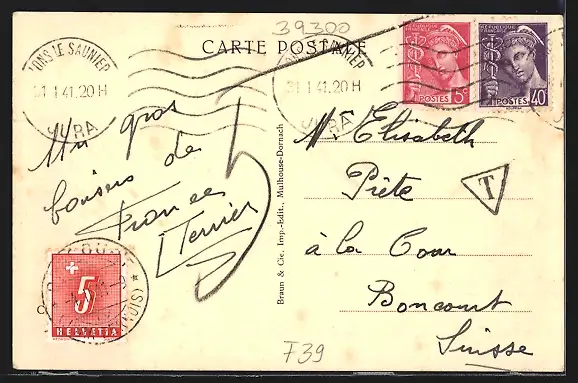 39300
CARTE POSTALE
LONS LE SAUNIER
31 1 41.20H
JURA
31 1 41.20H
JURA
RÉPUBLIQUE FRANÇAISE
POSTES 5c
RÉPUBLIQUE FRANÇAISE
POSTES 40c
T
5
Un gros
baisers de
Frances
Terrier
Mme Elisabeth
Piète
à la Cour
Boncourt
Suisse
Braun & Cie, Imp.-Edit., Mulhouse-Dornach
5
HELVETIA
F39